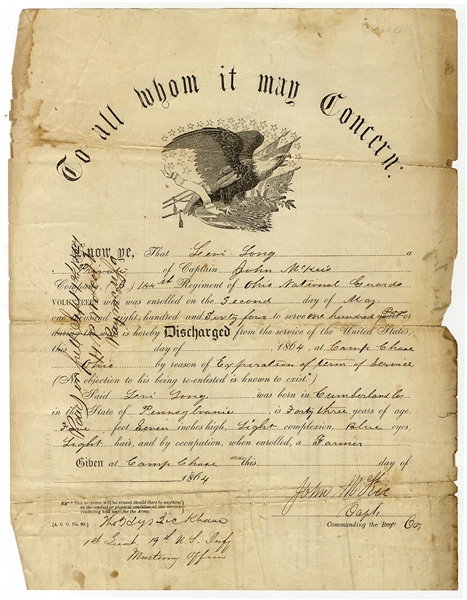 To all whom it may Concern:
Know ye, That Levi Long a
Private of Captain John McKee
Company, ( ) 144th Regiment of Ohio National Guards
VOLUNTEERS who was enrolled on the Second day of May
one thousand eight hundred and Sixty four to serve one hundred Days or
is hereby Discharged from the service of the United States,
this day of , 1864, at Camp Chase
Ohio by reason of Expiration of term of Service
(No objection to his being re-enlisted is known to exist.*)
Said Levi Long was born in Cumberland Co
in the State of Pennsylvania is Forty three years of age,
feet Seven inches high, Light complexion, Blue eyes,
Light hair, and by occupation, when enrolled, a Farmer
Given at Camp Chase this day of
1864
John McKee
Capt.
Commanding the Reg't
*This sentence will be erased should there be anything
in the conduct or physical condition of the soldier
rendering him unfit for the Army.
[A. G. O. No. 99.]
1st Lieut 19th U.S. Inff
Mustering Officer
Paid in full